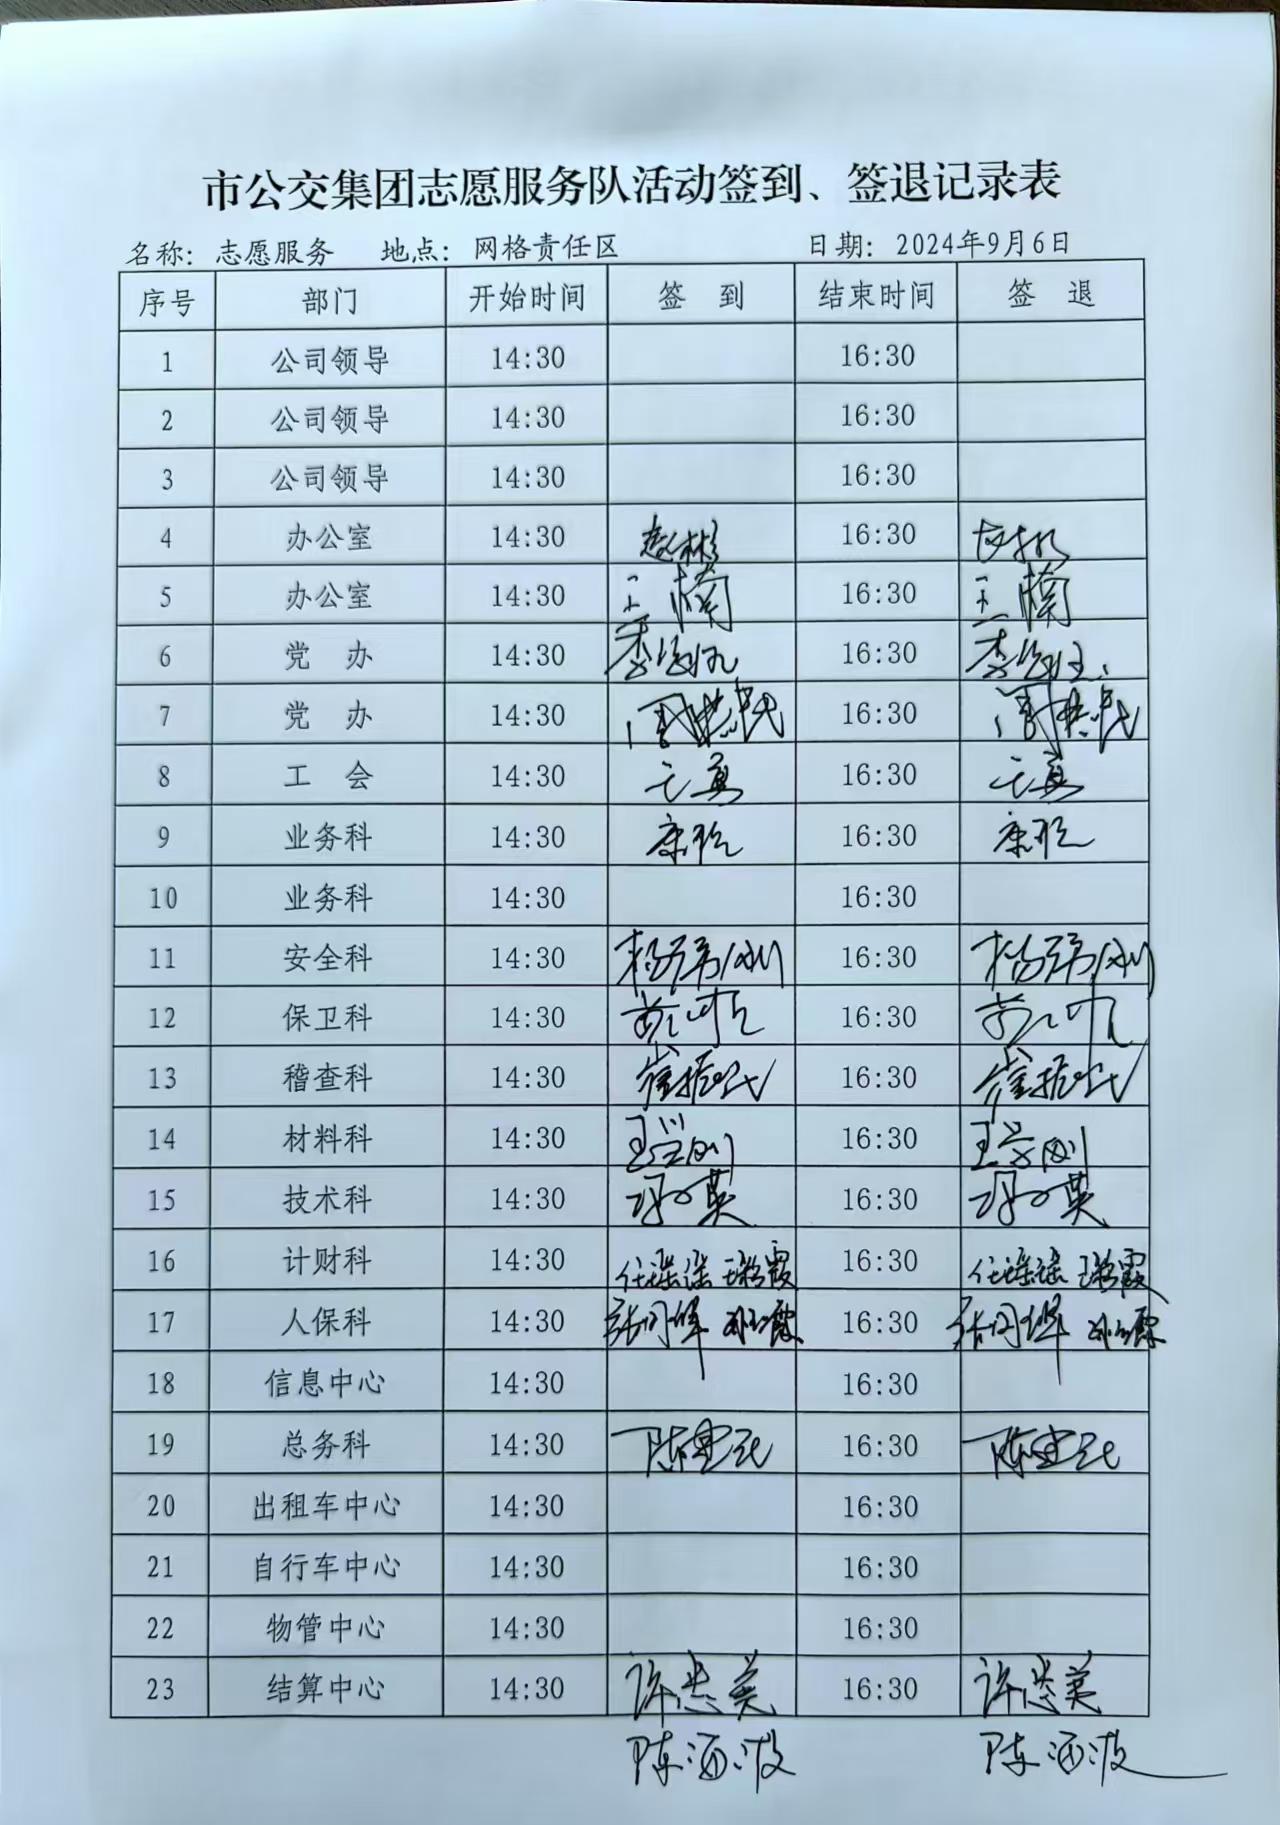 市公交集团志愿服务队活动签到、签退记录表
名称：志愿服务 地点：网格责任区 日期：2024年9月6日
序号 部门 开始时间 签 到 结束时间 签 退
1 公司领导 14:30 16:30
2 公司领导 14:30 16:30
3 公司领导 14:30 16:30
4 办公室 14:30 16:30
5 办公室 14:30 王楠 16:30 王楠
6 党 办 14:30 16:30
7 党 办 14:30 16:30
8 工 会 14:30 王真 16:30 王真
9 业务科 14:30 16:30
10 业务科 14:30 16:30
11 安全科 14:30 16:30
12 保卫科 14:30 16:30
13 稽查科 14:30 崔振武 16:30 崔振武
14 材料科 14:30 16:30
15 技术科 14:30 16:30
16 计财科 14:30 任瑶瑶 16:30 任瑶瑶
17 人保科 14:30 16:30
18 信息中心 14:30 16:30
19 总务科 14:30 16:30
20 出租车中心 14:30 16:30
21 自行车中心 14:30 16:30
22 物管中心 14:30 16:30
23 结算中心 14:30 许忠美 16:30 许忠美
陈海波 陈海波